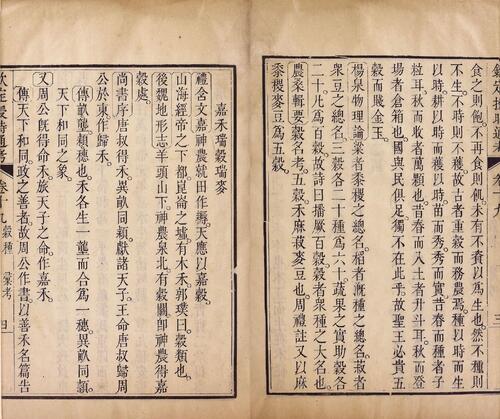 食之則飽不再食則飢
生也然不種則
不生不時則不穫故古者重穀而務農焉種以時而生
以時耕以時而穫以時苗而秀秀而實昔春而種者子
粒耳秋而收者萬顆也昔春而入土者升斗耳秋而登
場者倉箱也國與民俱足獨不在此乎故聖王必貴五
穀而賤金玉
楊泉物理論粱者黍稷之總名稻者漑種之總名菽者
衆豆之總名三穀各二十種爲六十蔬果之實助穀各
二十凡爲百穀故詩曰播厥百穀穀者衆種之大名也
農桑輯要穀名考五穀禾麻菽麥豆也周禮註又以麻
黍稷麥豆爲五穀
嘉禾瑞穀瑞麥
禮含文嘉神農就田作耨天應以嘉穀
山海經帝之下都崑崙之墟有木禾郭璞曰穀類也
後魏地形志羊頭山下神農泉北有穀關卽神農得嘉
穀處
尚書序唐叔得禾異畝同穎獻諸天子王命唐叔歸周
公於東作歸禾
傳畝壟穎穗也禾各生一壟而合爲一穗異畝同穎
天下和同之象
又周公旣得命禾旅天子之命作嘉禾
傳天下和同政之善者故周公作書以善禾名篇告
欽定授時通考 卷十九 穀種 彙考 四